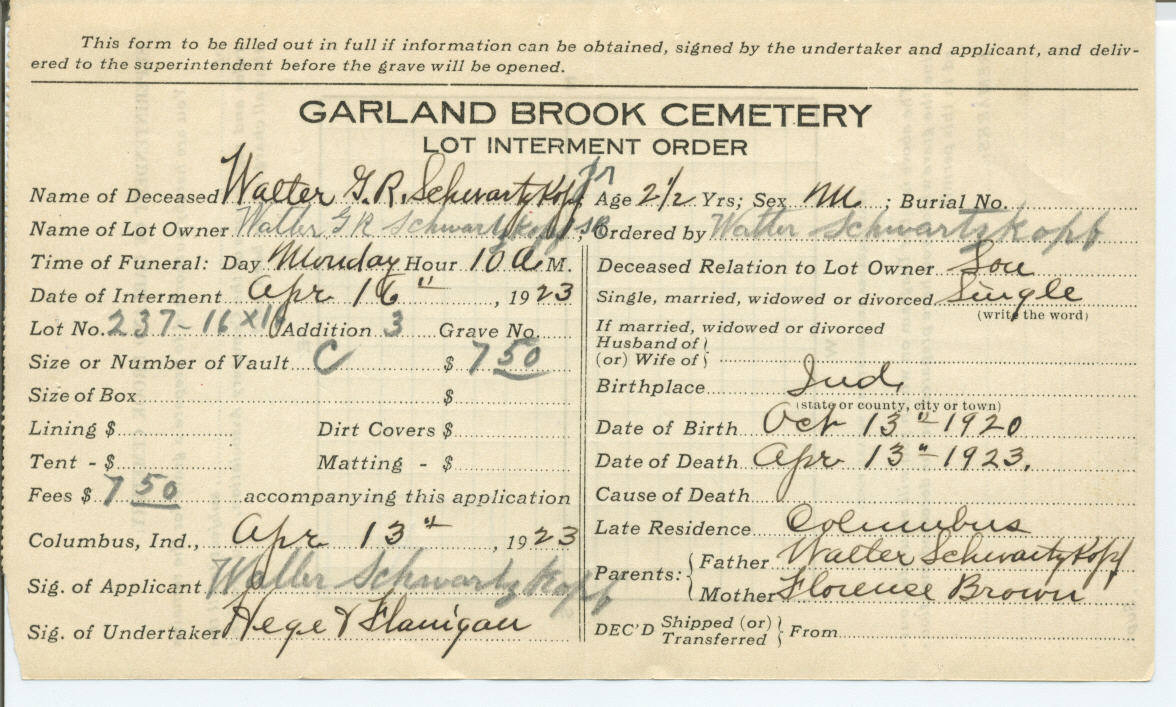 This form to be filled out in full if information can be obtained, signed by the undertaker and applicant, and deliv-
ered to the superintendent before the grave will be opened.
GARLAND BROOK CEMETERY
LOT INTERMENT ORDER
Name of Deceased Walter G. R. Schwartzkopf Jr
Name of Lot Owner Walter G R Schwartzkopf, SR
Time of Funeral: Day Monday Hour 10 A M.
Date of Interment Apr 16", 1923
Lot No. 237-16x16 Addition 3 Grave No.
Size or Number of Vault C $ 7 50
Size of Box $
Lining $ Dirt Covers $
Tent - $ Matting - $
Fees $ 7 50 accompanying this application
Columbus, Ind., Apr 13", 1923
Sig. of Applicant Walter Schwartzkopf
Sig. of Undertaker Hege & Flanigan
Age 2 1/2 Yrs; Sex M ; Burial No.
Ordered by Walter Schwartzkopf
Deceased Relation to Lot Owner Son
Single, married, widowed or divorced Single
(write the word)
If married, widowed or divorced
Husband of
(or) Wife of
Birthplace Ind.
(state or county, city or town)
Date of Birth Oct 13" 1920
Date of Death Apr 13" - 1923.
Cause of Death
Late Residence Columbus
Parents: Father Walter Schwartzkopf
Mother Florence Brown
DEC'D Shipped (or) Transferred From